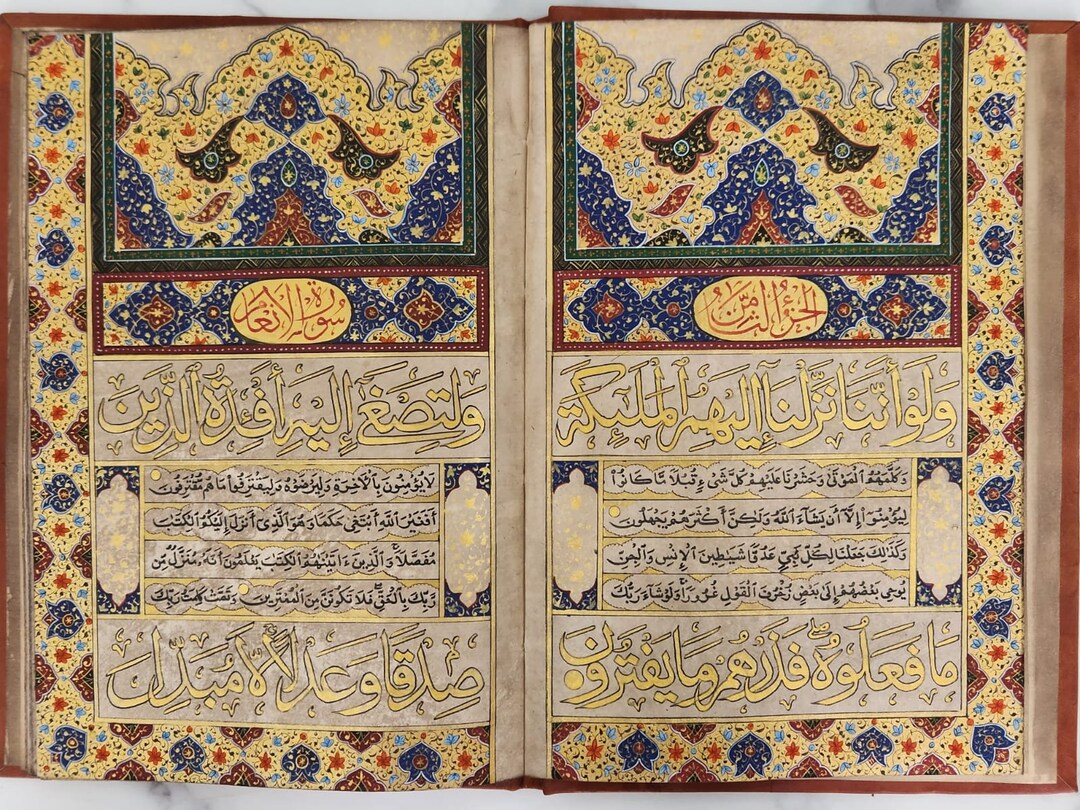 الجزؤ الثامن
وَلَوْ أَنَّنَا نَزَّلْنَا إِلَيْهِمُ ٱلْمَلَٰٓئِكَةَ
وَكَلَّمَهُمُ ٱلْمَوْتَىٰ وَحَشَرْنَا عَلَيْهِمْ كُلَّ شَىْءٍ قُبُلًا مَّا كَانُوا۟
لِيُؤْمِنُوٓا۟ إِلَّآ أَن يَشَآءَ ٱللَّهُ وَلَٰكِنَّ أَكْثَرَهُمْ يَجْهَلُونَ
وَكَذَٰلِكَ جَعَلْنَا لِكُلِّ نَبِىٍّ عَدُوًّا شَيَٰطِينَ ٱلْإِنسِ وَٱلْجِنِّ
يُوحِى بَعْضُهُمْ إِلَىٰ بَعْضٍ زُخْرُفَ ٱلْقَوْلِ غُرُورًا وَلَوْ شَآءَ رَبُّكَ
مَا فَعَلُوهُ فَذَرْهُمْ وَمَا يَفْتَرُونَ
سورة الانعام
وَلِتَصْغَىٰٓ إِلَيْهِ أَفْـِٔدَةُ ٱلَّذِينَ
لَا يُؤْمِنُونَ بِٱلْءَاخِرَةِ وَلِيَرْضَوْهُ وَلِيَقْتَرِفُوا۟ مَا هُم مُّقْتَرِفُونَ
أَفَغَيْرَ ٱللَّهِ أَبْتَغِى حَكَمًا وَهُوَ ٱلَّذِىٓ أَنزَلَ إِلَيْكُمُ ٱلْكِتَٰبَ
مُفَصَّلًا وَٱلَّذِينَ ءَاتَيْنَٰهُمُ ٱلْكِتَٰبَ يَعْلَمُونَ أَنَّهُۥ مُنَزَّلٌ مِّن
رَّبِّكَ بِٱلْحَقِّ فَلَا تَكُونَنَّ مِنَ ٱلْمُمْتَرِينَ وَتَمَّتْ كَلِمَتُ رَبِّكَ
صِدْقًا وَعَدْلًا لَّا مُبَدِّلَ